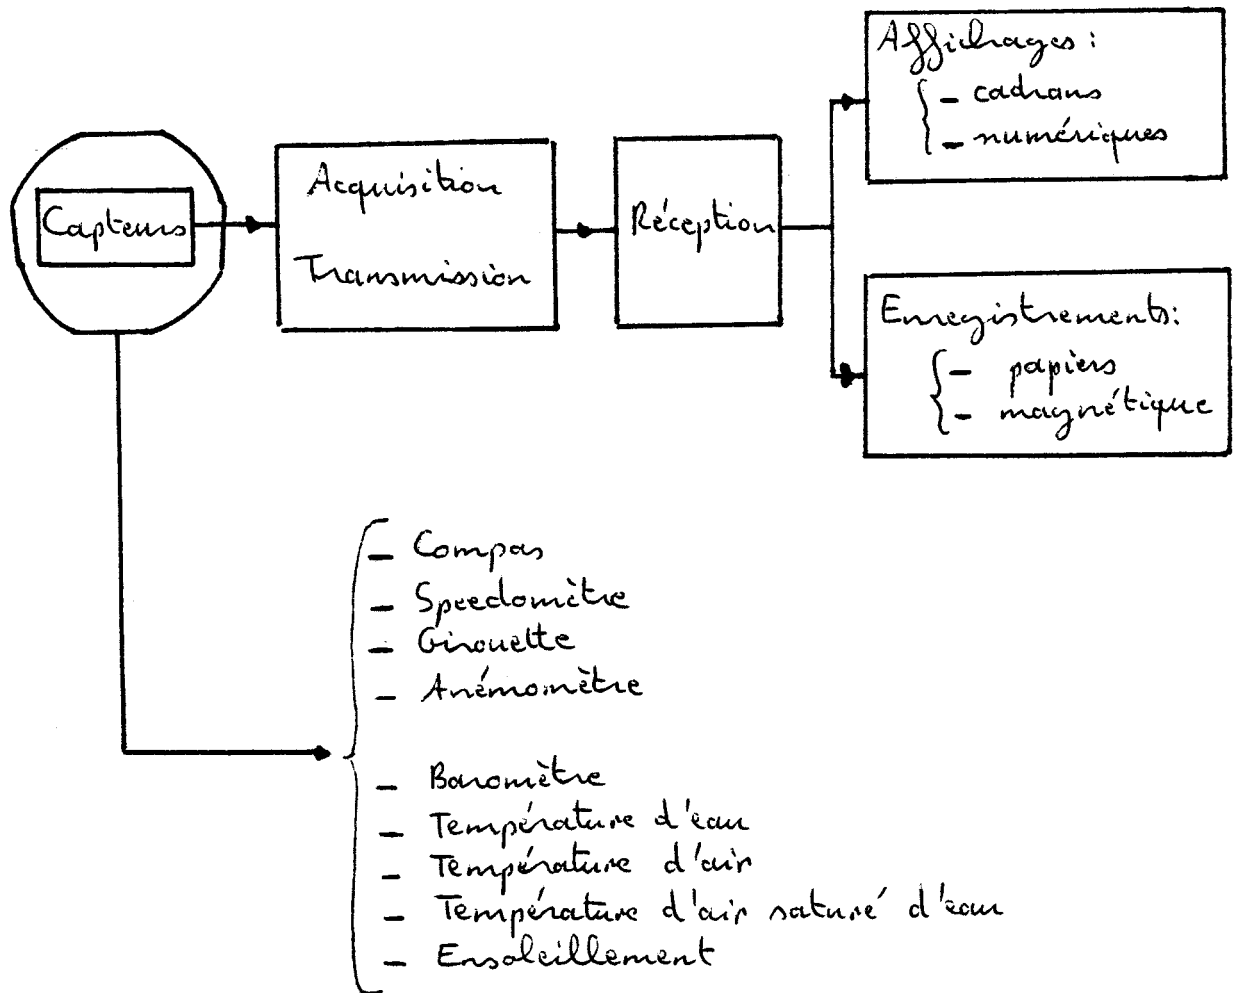 Capteurs
Acquisition
Transmission
Réception
Affichages :
- cadrans
- numériques
Enregistrements :
- papiers
- magnétique
- Compas
- Speedomètre
- Girouette
- Anémomètre
- Baromètre
- Température d'eau
- Température d'air
- Température d'air saturé d'eau
- Ensoleillement